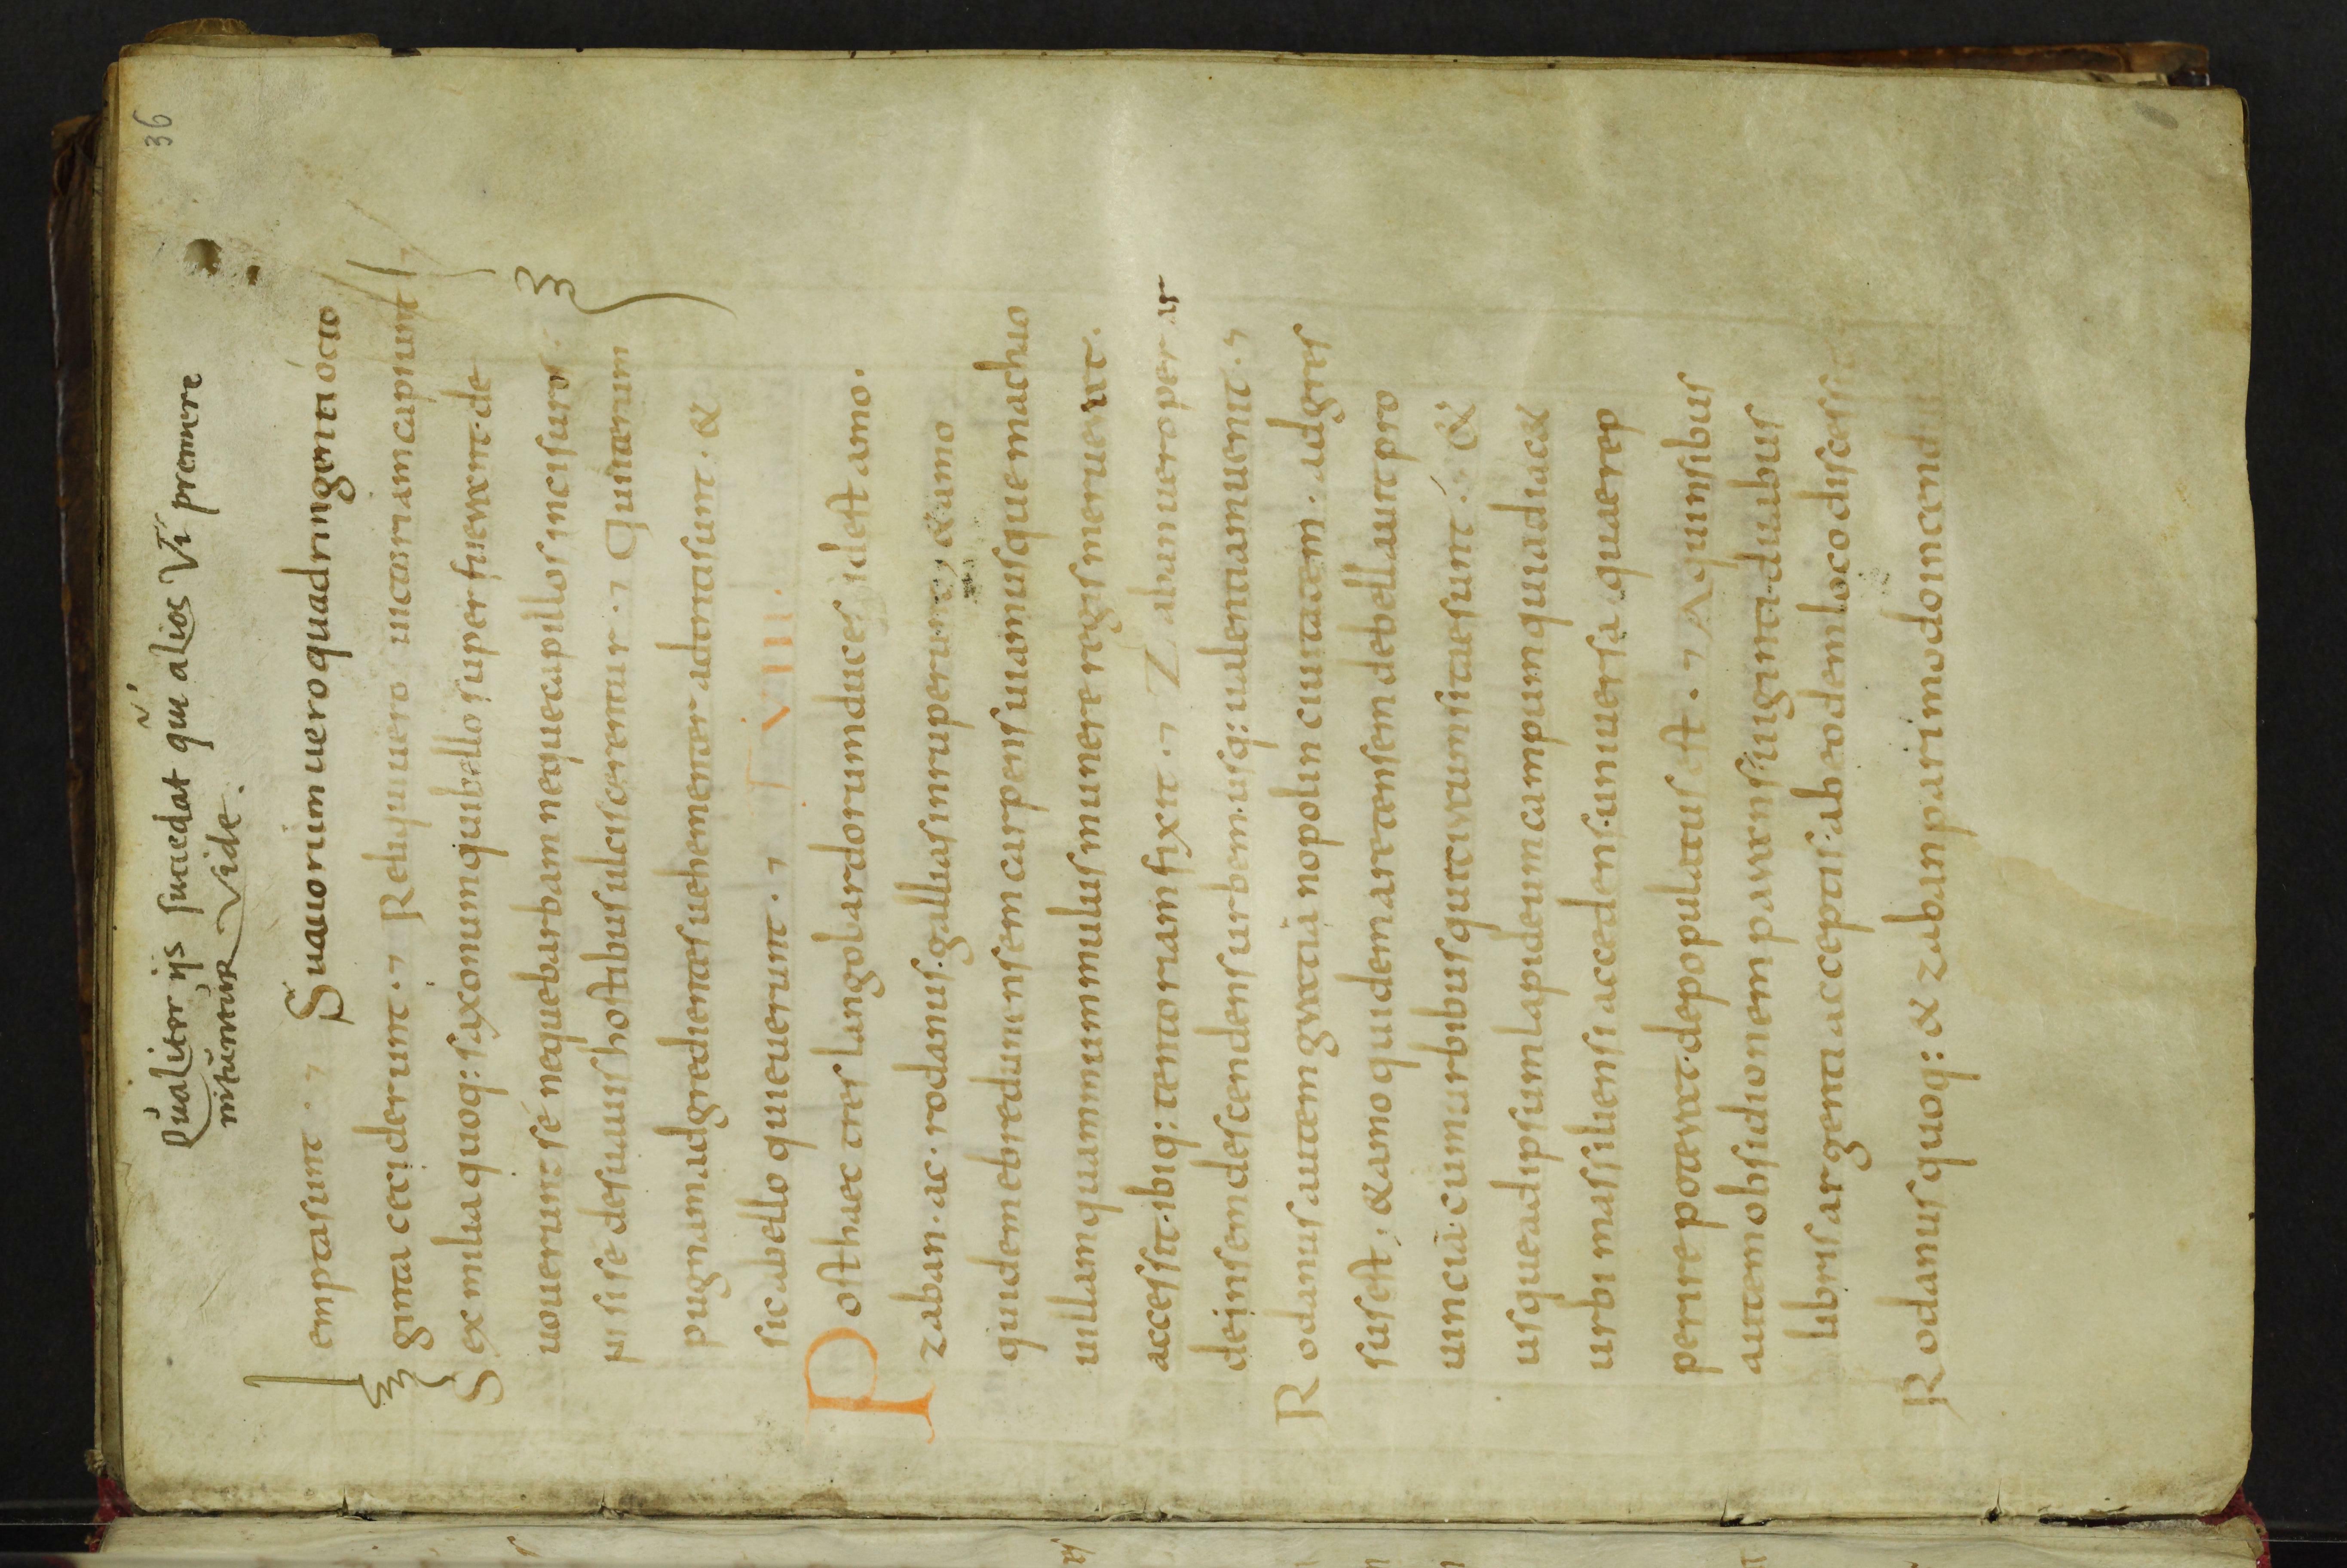 36
Qualiter ijs succedat qui alios vi premere
nituntur vide.
emptasunt. Suauorum uero quadringenti octo
ginta ceciderunt. Reliqui uero uictoriam capiunt
Sex milia quoq: saxonum qui bello superfuerunt. de
uouerunt se neque barbam neque capillos incisuros.
nisi se de suauis hostibus ulciscerentur. Qui iterum
pugnam adgredientes uehementer adtritasunt. &
sic a bello quieuerunt. VIII.
Post haec tres langobardorum duces idest amo.
zaban. ac. rodanus. gallias inruperunt, & amo
quidem ebredunensem carpens uiam usque machao
uillam quam mummulus munere regis meruerat.
accessit. ibiq: tentoria infixit. Zaban uero per ur
deinsem descendens urbem. usq: ualentiam uenit.
Rodanus autem gratianopolin ciuitatem. adgres
sus est; & amo quidem aretansem debellauit pro
uinciã. cum urbibus que circum sitae sunt. &
usque ad ipsum lapideum campum qui adiac&
urbi massiliensi accedens. uniuersa quae rep
perire poterat. depopulatus est. Aquinsibus
autem obsidionem parans uiginti duabus
libris argenti acceptis. ab eodem loco discessit
Rodanus quoq: & zaban pari modo incendiis